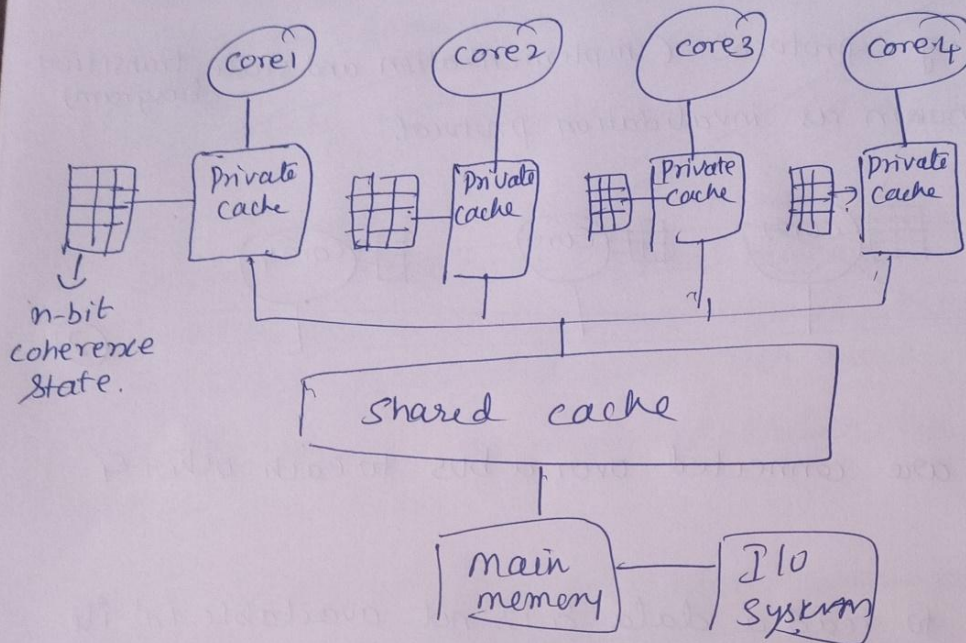 core1
core2
core3
core4
Private
cache
Private
cache
Private
cache
Private
cache
n-bit
coherence
state.
Shared cache
main
memory
I/O
system